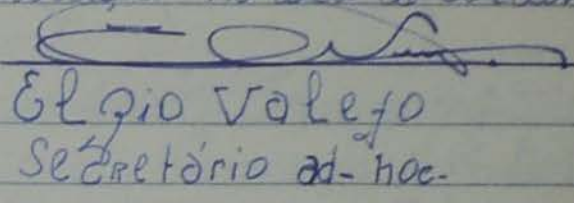 Elgio Valejo
Secretário ad-hoc-